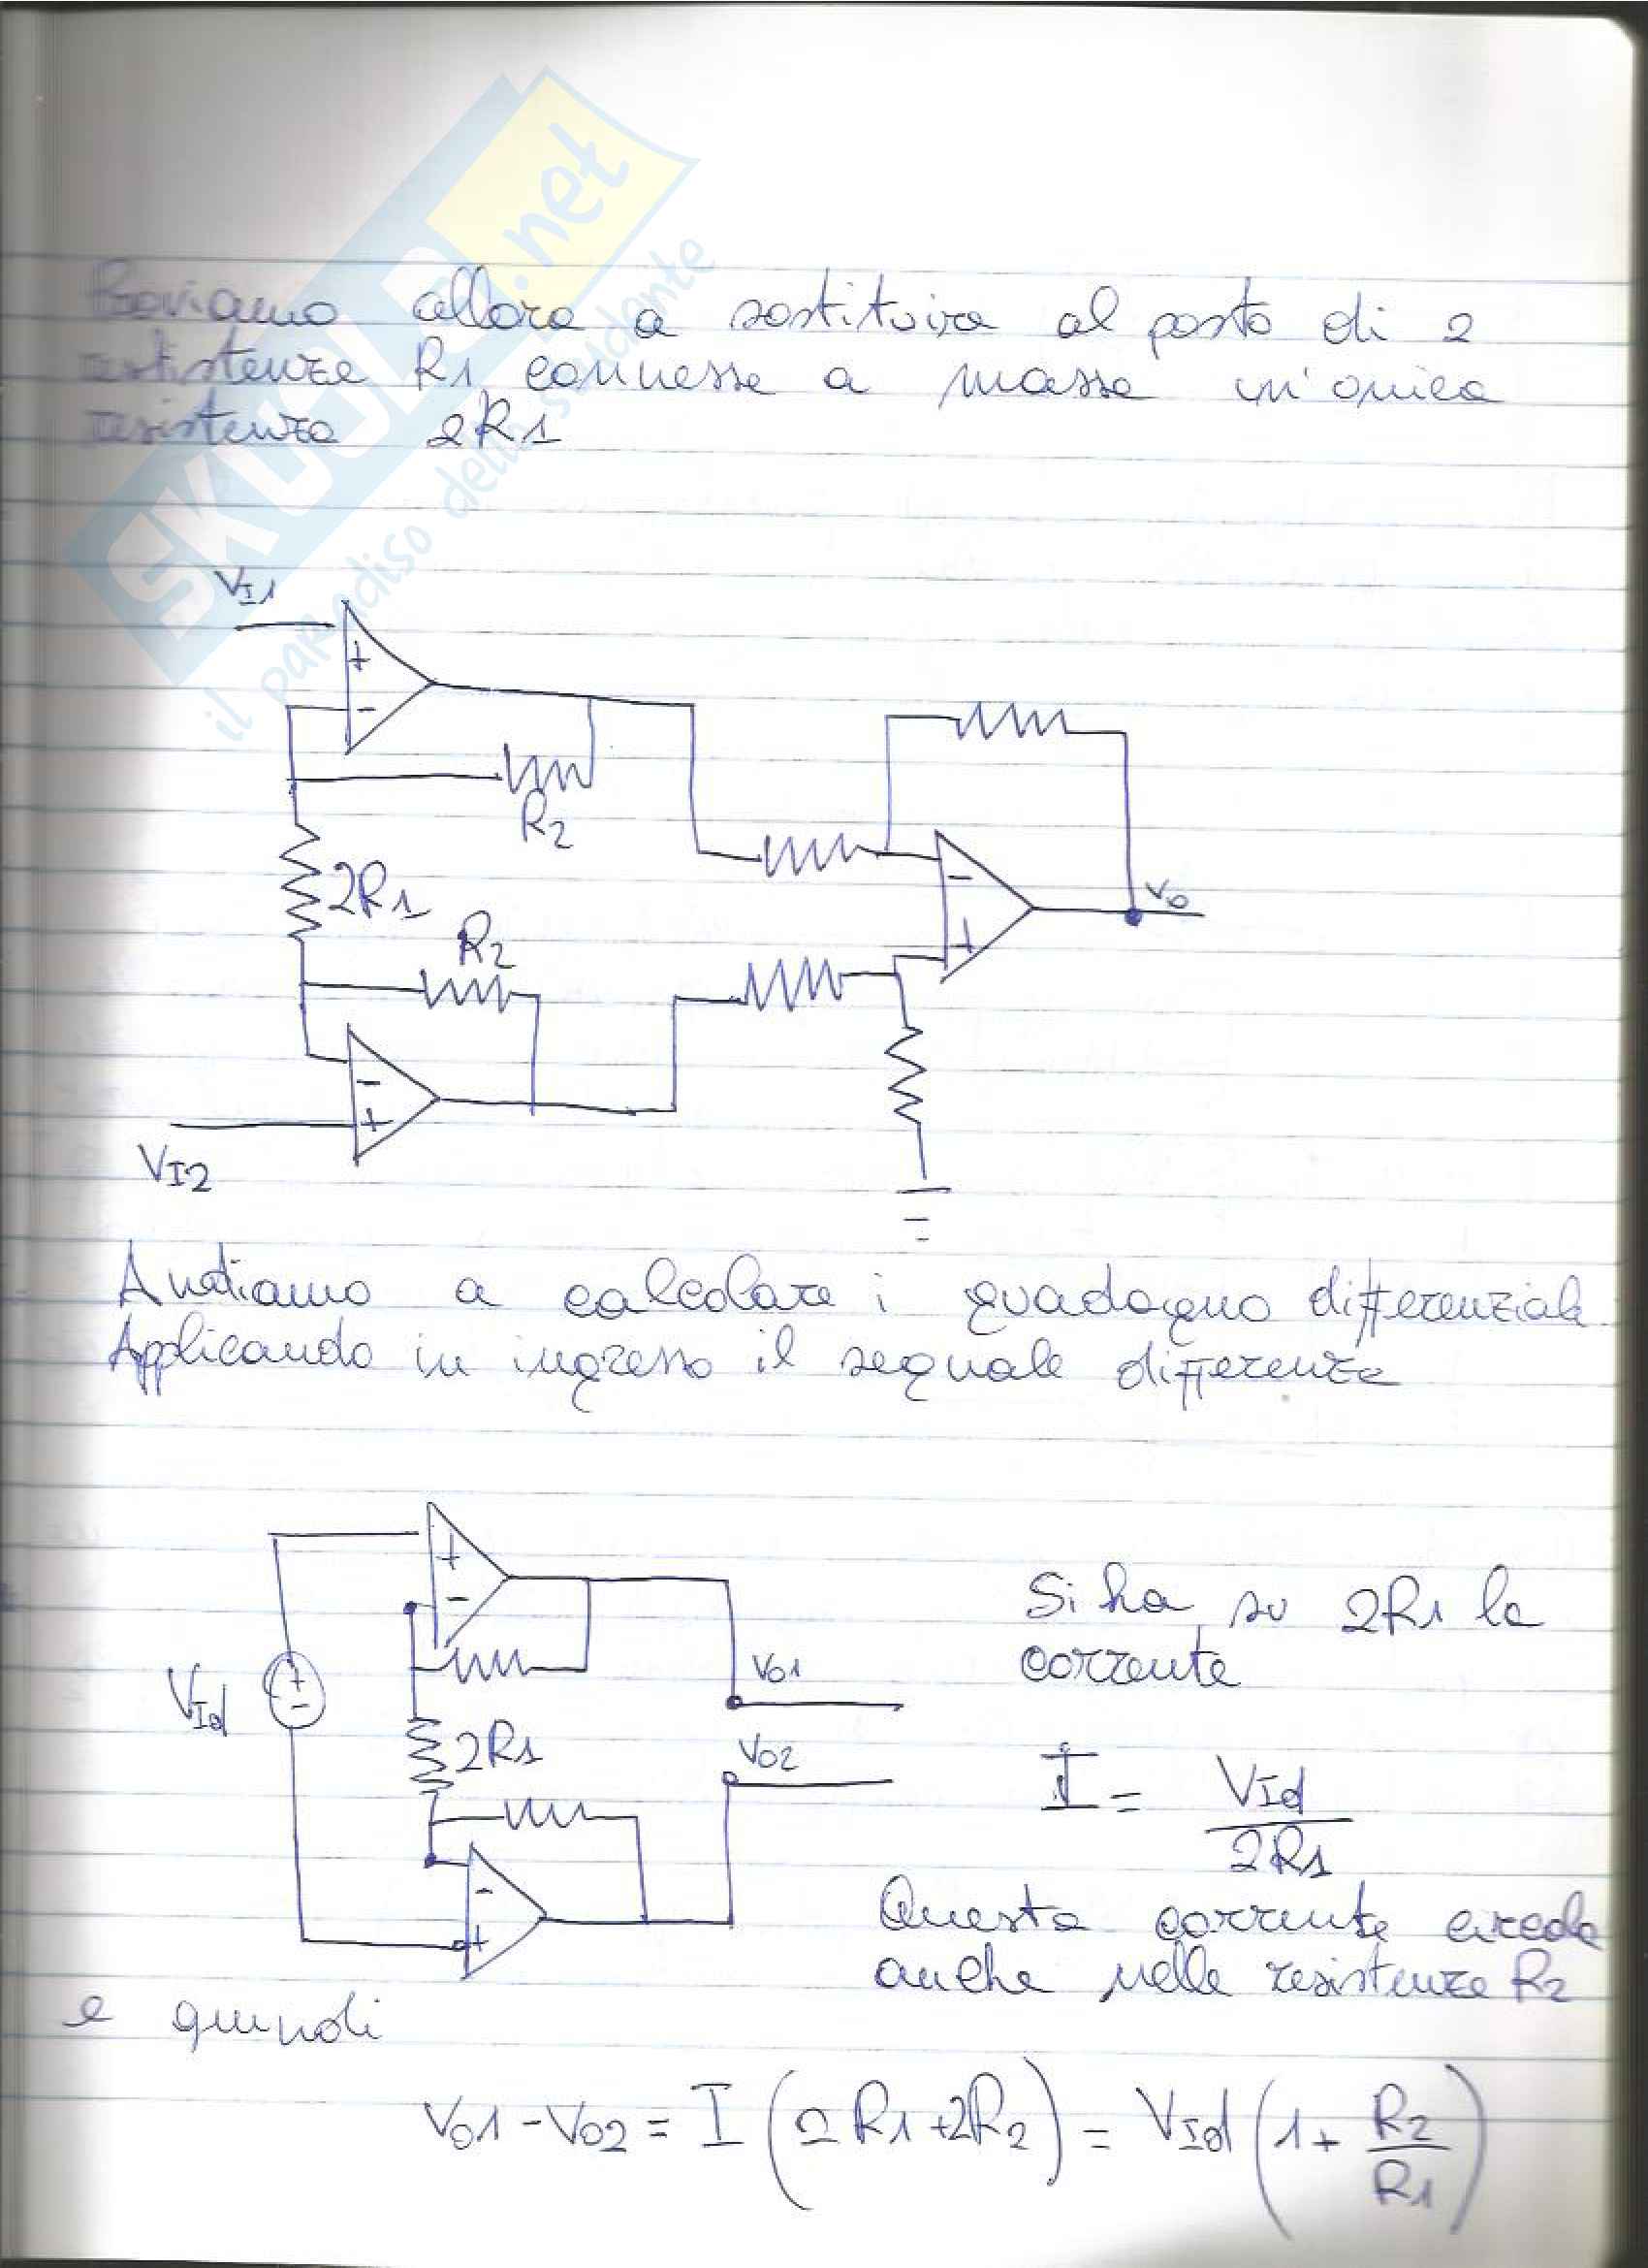 SKUOLA.net
il paradiso dello studente
Proviamo allora a sostituire al posto di 2
resistenze R1 connesse a massa un'unica
resistenza 2R1
VI1
+
-
R2
2R1
R2
-
+
VI2
-
+
Vo
Andiamo a calcolare i guadagno differenziale
Applicando in ingresso il segnale differenza
+
-
VId
+
-
2R1
-
+
Vo1
Vo2
Si ha su 2R1 la
corrente
I = VId / 2R1
Questa corrente circola
anche nelle resistenze R2
e quindi
Vo1 - Vo2 = I (2R1 + 2R2) = VId (1 + R2/R1)